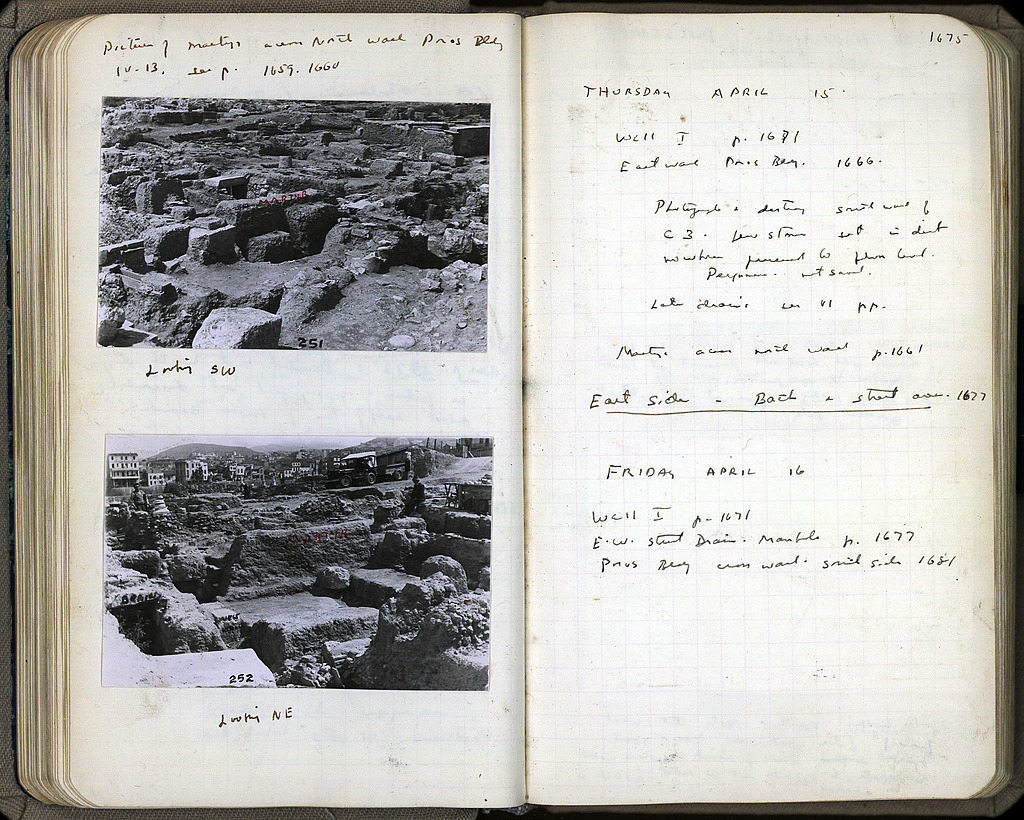 Picture of Martyr across North wall Poros Bldg
IV-13. see p. 1659. 1660
MARTYR
251
Looking SW
MARTYR
DRAIN
252
Looking NE
1675
THURSDAY APRIL 15.
Well I p. 1671
East wall Poros Bldg. 1666.
Photograph & destroy south wall of
C 3. few stones set in dirt
nowhere preserved to floor level.
Pergamene. not saved.
Late drains see VI pp.
Martyr across north wall p. 1661
East side - Bath & street area. 1677
FRIDAY APRIL 16
Well I p. 1671
E.W. street Drain. Manhole p. 1677
Poros Bldg cross wall. south side 1681